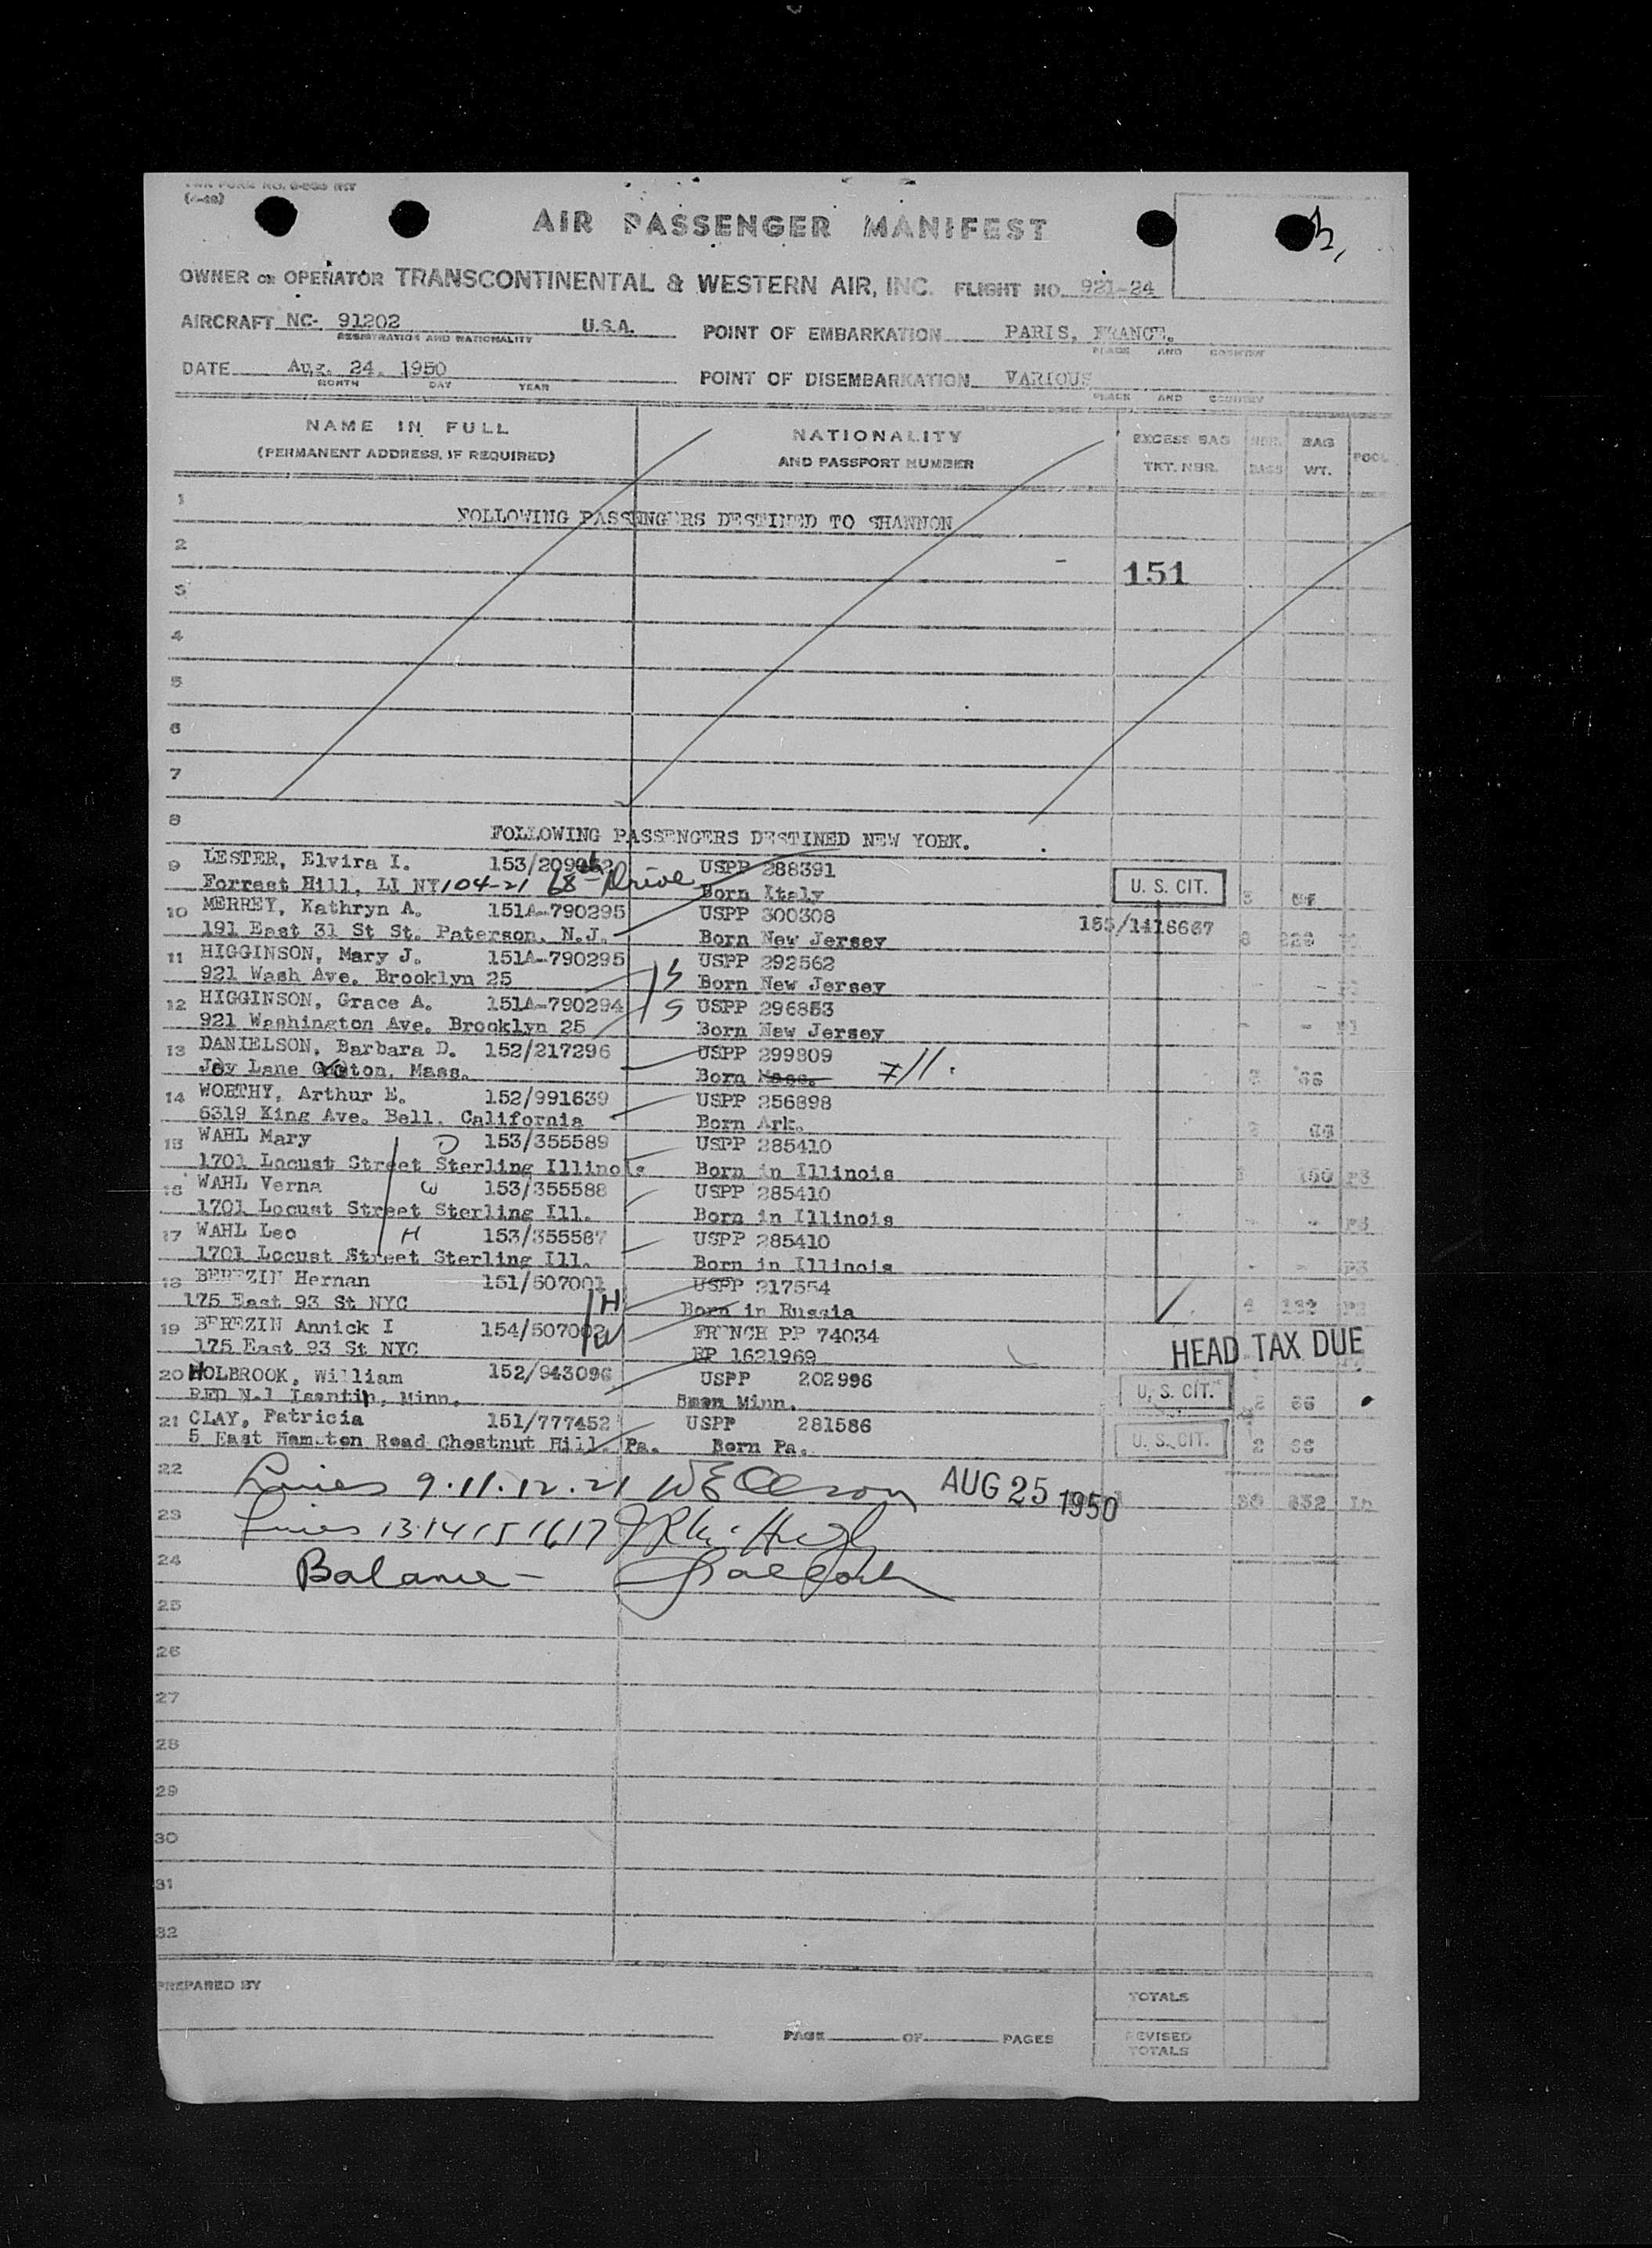 (4-49)
AIR PASSENGER MANIFEST
OWNER OR OPERATOR TRANSCONTINENTAL & WESTERN AIR, INC. FLIGHT NO. 921-24
AIRCRAFT NC- 91202 U.S.A. POINT OF EMBARKATION PARIS, FRANCE.
REGISTRATION AND NATIONALITY PLACE AND COUNTRY
DATE Aug. 24. 1950 POINT OF DISEMBARKATION VARIOUS
MONTH DAY YEAR PLACE AND COUNTRY
NAME IN FULL NATIONALITY EXCESS BAG NBR. BAG POOL
(PERMANENT ADDRESS, IF REQUIRED) AND PASSPORT NUMBER TKT. NBR. BAGS WT.
1
FOLLOWING PASSENGERS DESTINED TO SHANNON
2
151
3
4
5
6
7
8
FOLLOWING PASSENGERS DESTINED NEW YORK.
9 LESTER, Elvira I. USPP 288391
Forrest Hill, LI NY 104-21 68th Drive Born Italy U. S. CIT. 3
10 MERREY, Kathryn A. 151A-790295 USPP 300308 155/1416667
191 East 31 St St. Paterson, N.J. Born New Jersey
11 HIGGINSON, Mary J. 151A-790295 USPP 292562
921 Wash Ave. Brooklyn 25 Born New Jersey
12 HIGGINSON, Grace A. 151A-790294 S USPP 296853
921 Washington Ave. Brooklyn 25 Born New Jersey
13 DANIELSON, Barbara D. 152/217296 USPP 299809
Joy Lane Groton, Mass. Born Mass. 7/1.
14 WORTHY, Arthur E. 152/991639 USPP 256898
6319 King Ave. Bell, California Born Ark.
15 WAHL Mary D 153/355589 USPP 285410
1701 Locust Street Sterling Illinois Born in Illinois 150 P3
16 WAHL Verna W 153/355588 USPP 285410
1701 Locust Street Sterling Ill. Born in Illinois - - P3
17 WAHL Leo H 153/355587 USPP 285410
1701 Locust Street Sterling Ill. Born in Illinois - - P3
18 BEREZIN Hernan 151/507001 H USPP 217554
175 East 93 St NYC Born in Russia 4 132
19 BEREZIN Annick I 154/507002 W FRENCH PP 74034
175 East 93 St NYC RP 1621969 HEAD TAX DUE
20 HOLBROOK, William 152/943096 USPP 202996
RFD N.1 Minn. Born Minn. U. S. CIT. 2 66
21 CLAY, Patricia 151/777452 USPP 281586
5 East Hampton Road Chestnut Hill, Pa. Born Pa. U. S. CIT. 2 66
22 Lines 9.11.12.21 AUG 25 1950
23 Lines 13.14 15 16 17
24 Balance -
25
26
27
28
29
30
31
32
PREPARED BY
TOTALS
PAGE OF PAGES REVISED
TOTALS